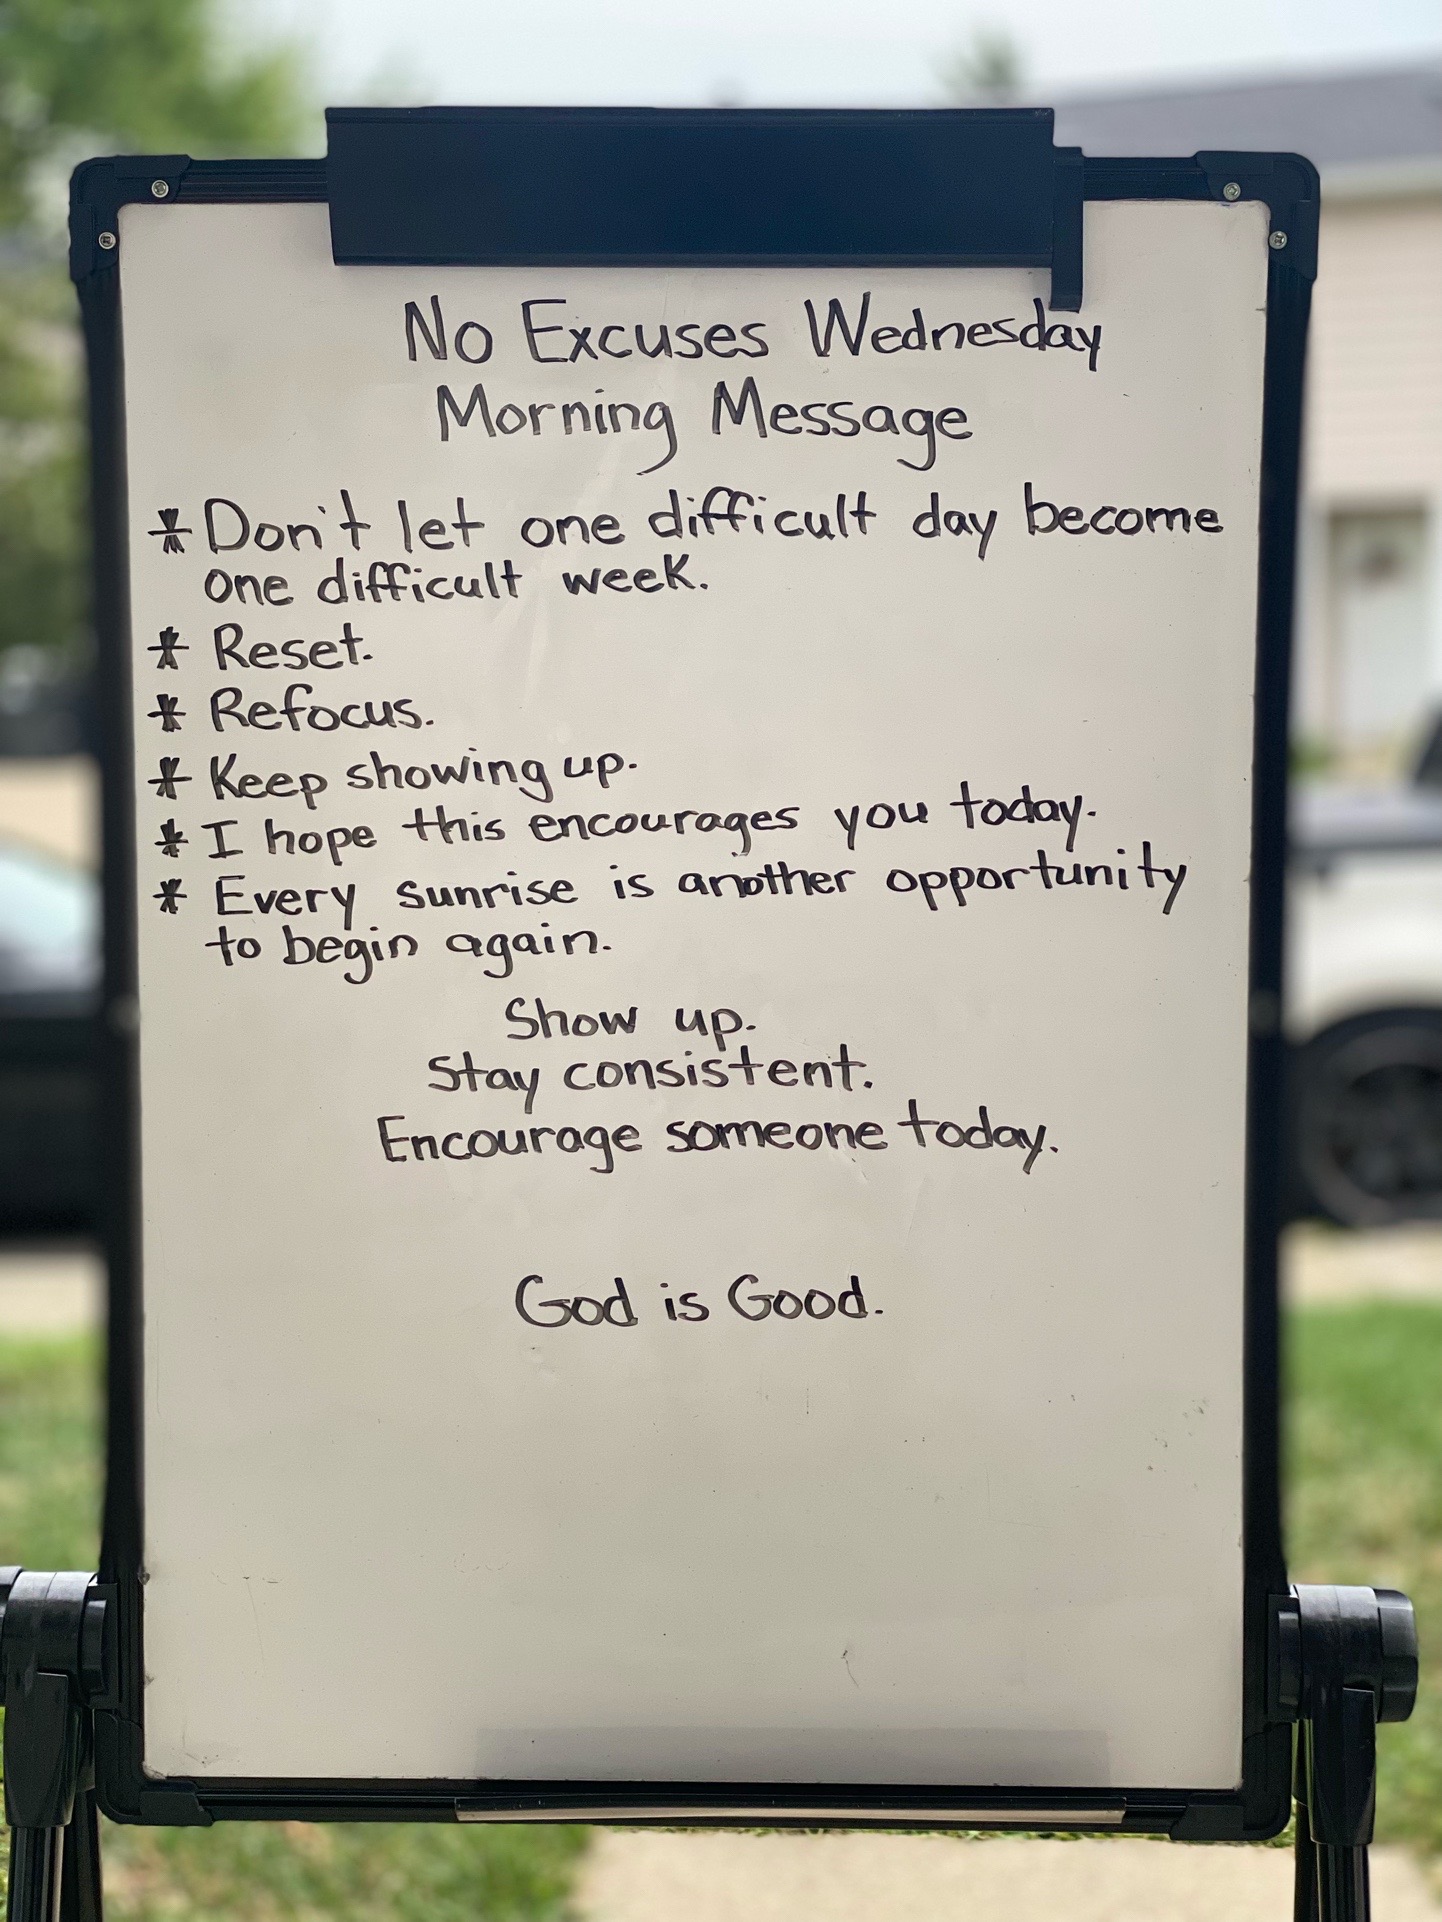 No Excuses Wednesday
Morning Message
* Don't let one difficult day become
one difficult week.
* Reset.
* Refocus.
* Keep showing up.
* I hope this encourages you today.
* Every sunrise is another opportunity
to begin again.
Show up.
Stay consistent.
Encourage someone today.
God is Good.